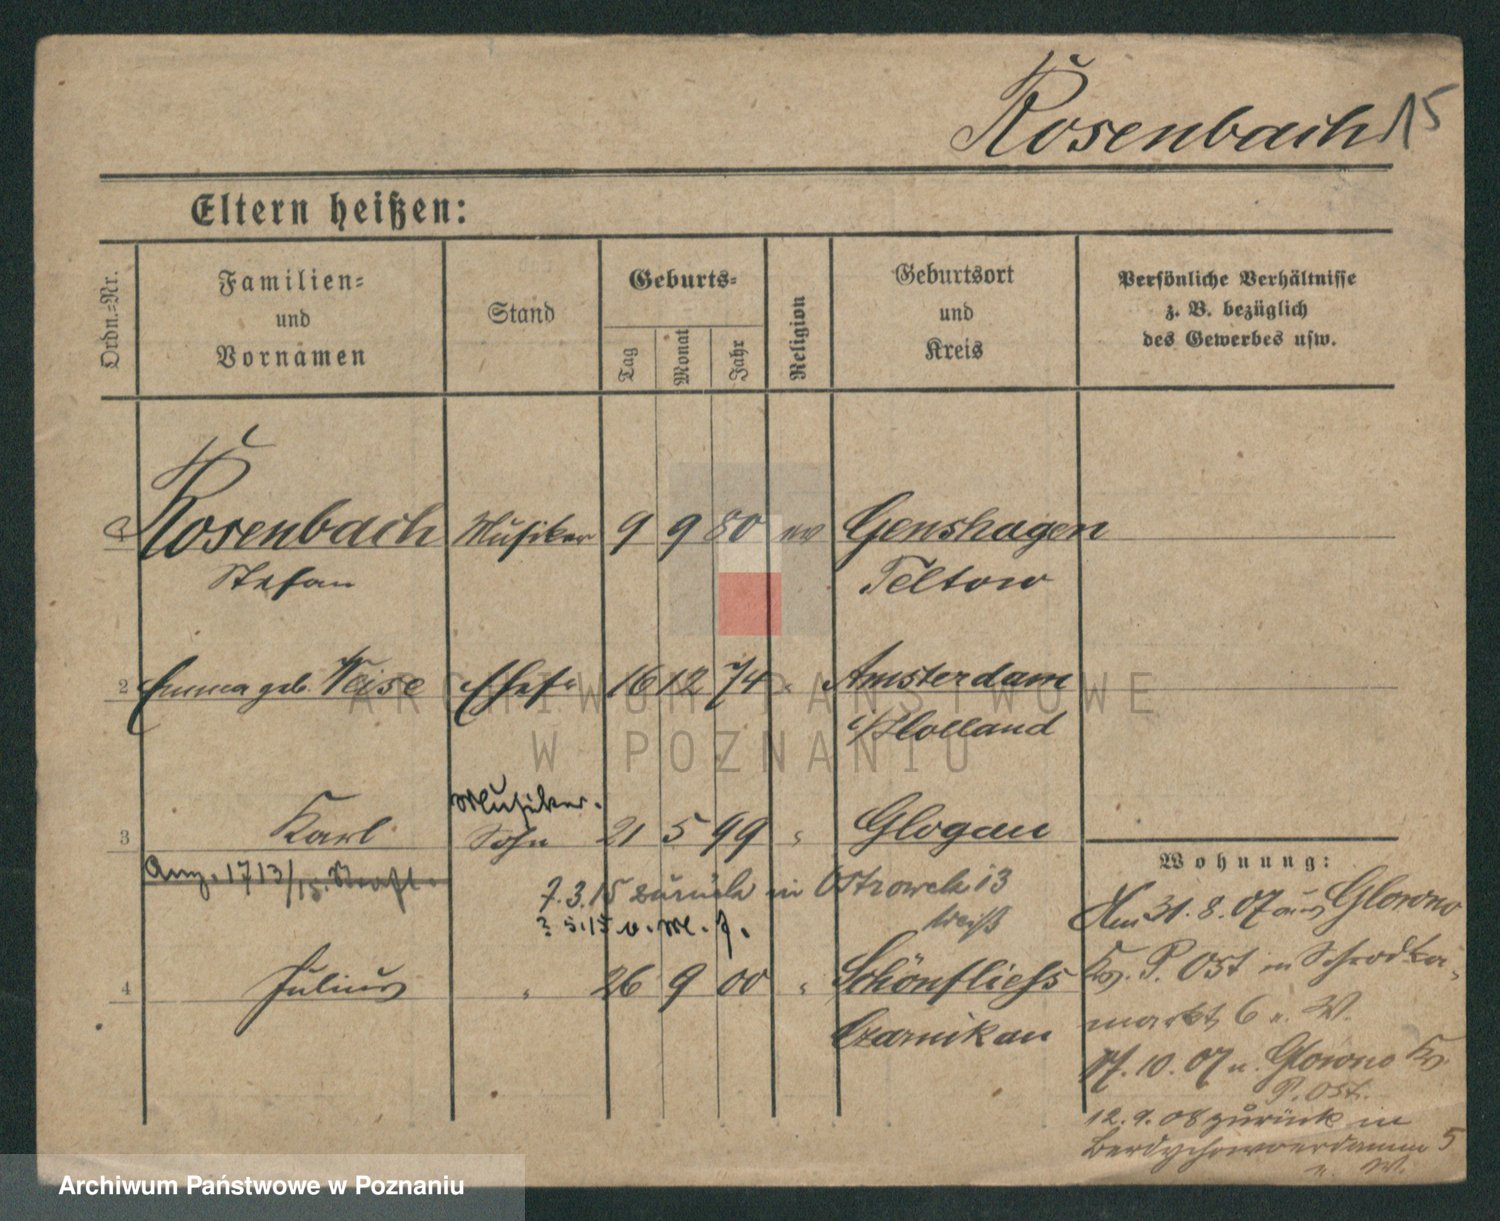 Rosenbach 15
Eltern heißen:
Ordn.=Nr.
Familien=
und
Vornamen
Stand
Geburts=
Tag
Monat
Jahr
Religion
Geburtsort
und
Kreis
Persönliche Verhältnisse
z. B. bezüglich
des Gewerbes usw.
1 Rosenbach Musiker 9 9 80 ev Genshagen
Stefan Teltow
2 Emma geb. Weise Ehef. 16 12 74 " Amsterdam
Holland
Musiker.
3 Karl Sohn 21 5 99 " Glogau
Wohnung:
Anz. 1713/15. 
7.3.15 zurück in Ostrowek 13
Am 31. 8. 07 aus Glowno
5.15 v. M. f.
4 Julius " 26 9 00 " Schönfliess
Kr. P. Ost in Schrodka-
Czarnikau
markt 6 u. W.
17. 10. 07 n. Glowno Kr.
P. Ost.
12. 9. 08 zurück in
Berdychowoerdamm 5
u. W.
ARCHIWUM PAŃSTWOWE
W POZNANIU
Archiwum Państwowe w Poznaniu